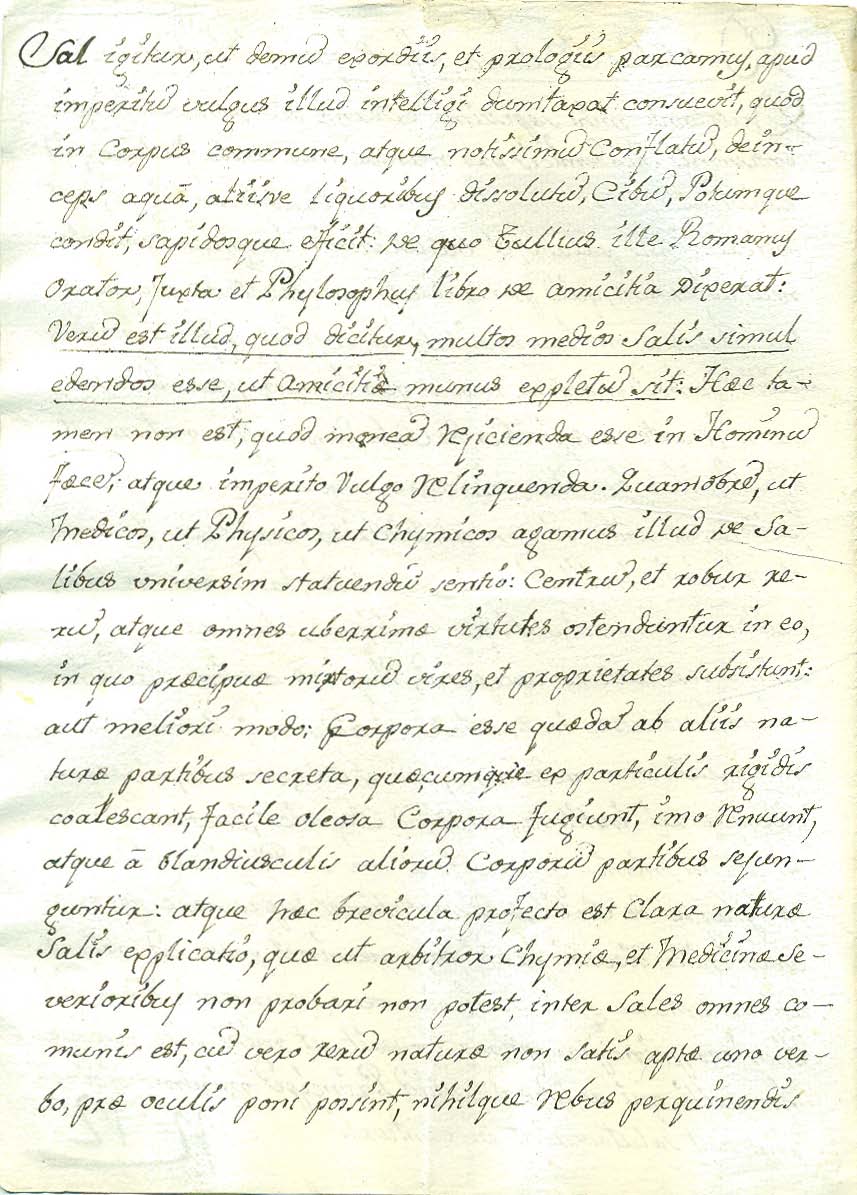 Sal igitur, ut demū exordiis, et prologiis parcamus, apud
imperitū vulgus illud intelligi dumtaxat consuevit, quod
in Corpus commune, atque notissimū Conflatū, dein-
ceps aquâ, aliisve liquoribus dissolutū, Cibū, Potumque
condit, sapidosque efficit: De quo Tullius ille Romanus
Orator, Juxta et Phylosophus libro de amicitia Dixerat:
Verū est illud, quod dicitur, multos medios Salis simul
edendos esse, ut amicitiæ munus expletū sit: Hæc ta-
men non est, quod moneā Rejicienda esse in Hominū
fæce, atque imperito Vulgo Relinquenda. Quamobrē, ut
Medicos, ut Physicos, ut Chymicos agamus illud de Sa-
libus universim statuendū sentio: Centrū, et robur re-
rū, atque omnes uberrimæ virtutes ostenduntur in eo,
in quo præcipuæ mixtorū vires, et proprietates subsistunt:
aut meliori modo: Corpora esse quædā ab aliis na-
turæ partibus secreta, quæcumque ex particulis rigidis
coalescant, facile oleosa Corpora fugiunt, imo Renuunt,
atque â blandiusculis aliorū Corporū partibus sejun-
guntur: atque hæc brevicula profecto est Clara naturæ
Salis explicatio, quæ ut arbitror Chymiæ, et Medicinæ se-
verioribus non probari non potest, inter Sales omnes co-
munis est, cū vero rerū naturæ non satis aptæ uno ver-
bo, præ oculis poni possint, nihilque Rebus perquirendis